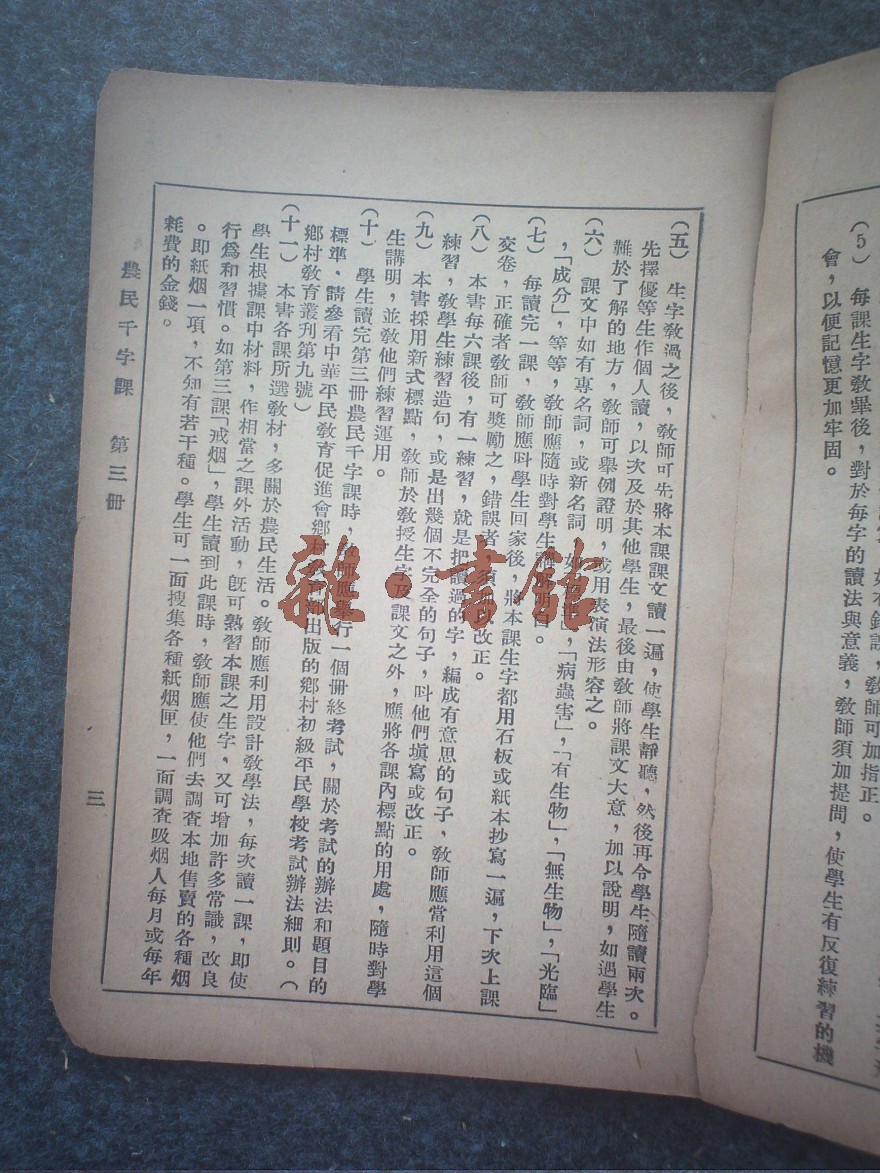 (5) 每課生字教畢後,對於每字的讀法與意義,教師須加提問,使學生有反復練習的機
會,以便記憶更加牢固。
(五) 生字教過之後,教師可先將本課課文讀一遍,使學生靜聽,然後再令學生隨讀兩次。
先擇優等生作個人讀,以次及於其他學生,最後由教師將課文大意,加以說明,如遇學生
難於了解的地方,教師可舉例證明,或用表演法形容之。
(六) 課文中如有專名詞,或新名詞,如「病蟲害」,「有生物」,「無生物」,「光臨」
,「成分」,等等,教師應隨時對學生
(七) 每讀完一課,教師應叫學生回家後,將本課生字都用石板或紙本抄寫一遍,下次上課
交卷,正確者教師可獎勵之,錯誤者,須加以改正。
(八) 本書每六課後,有一練習,就是把讀過的字,編成有意思的句子,教師應當利用這個
練習,教學生練習造句,或是出幾個不完全的句子,叫他們填寫或改正。
(九) 本書採用新式標點,教師於教授生字及課文之外,應將各課內標點的用處,隨時對學
生講明,並教他們練習運用。
(十) 學生讀完第三冊農民千字課時,教師應舉行一個冊終考試,關於考試的辦法和題目的
標準,請參看中華平民教育促進會鄉村教育部出版的鄉村初級平民學校考試辦法細則。(
鄉村教育叢刊第九號)
(十一) 本書各課所選教材,多關於農民生活。教師應利用設計教學法,每次讀一課,即使
學生根據課中材料,作相當之課外活動,旣可熟習本課之生字,又可增加許多常識,改良
行爲和習慣。如第三課「戒烟」,學生讀到此課時,教師應使他們去調查本地售賣的各種烟
。即紙烟一項,不知有若干種。學生可一面搜集各種紙烟匣,一面調查吸烟人每月或每年
耗費的金錢。
農民千字課 第三冊 三
雜·書館